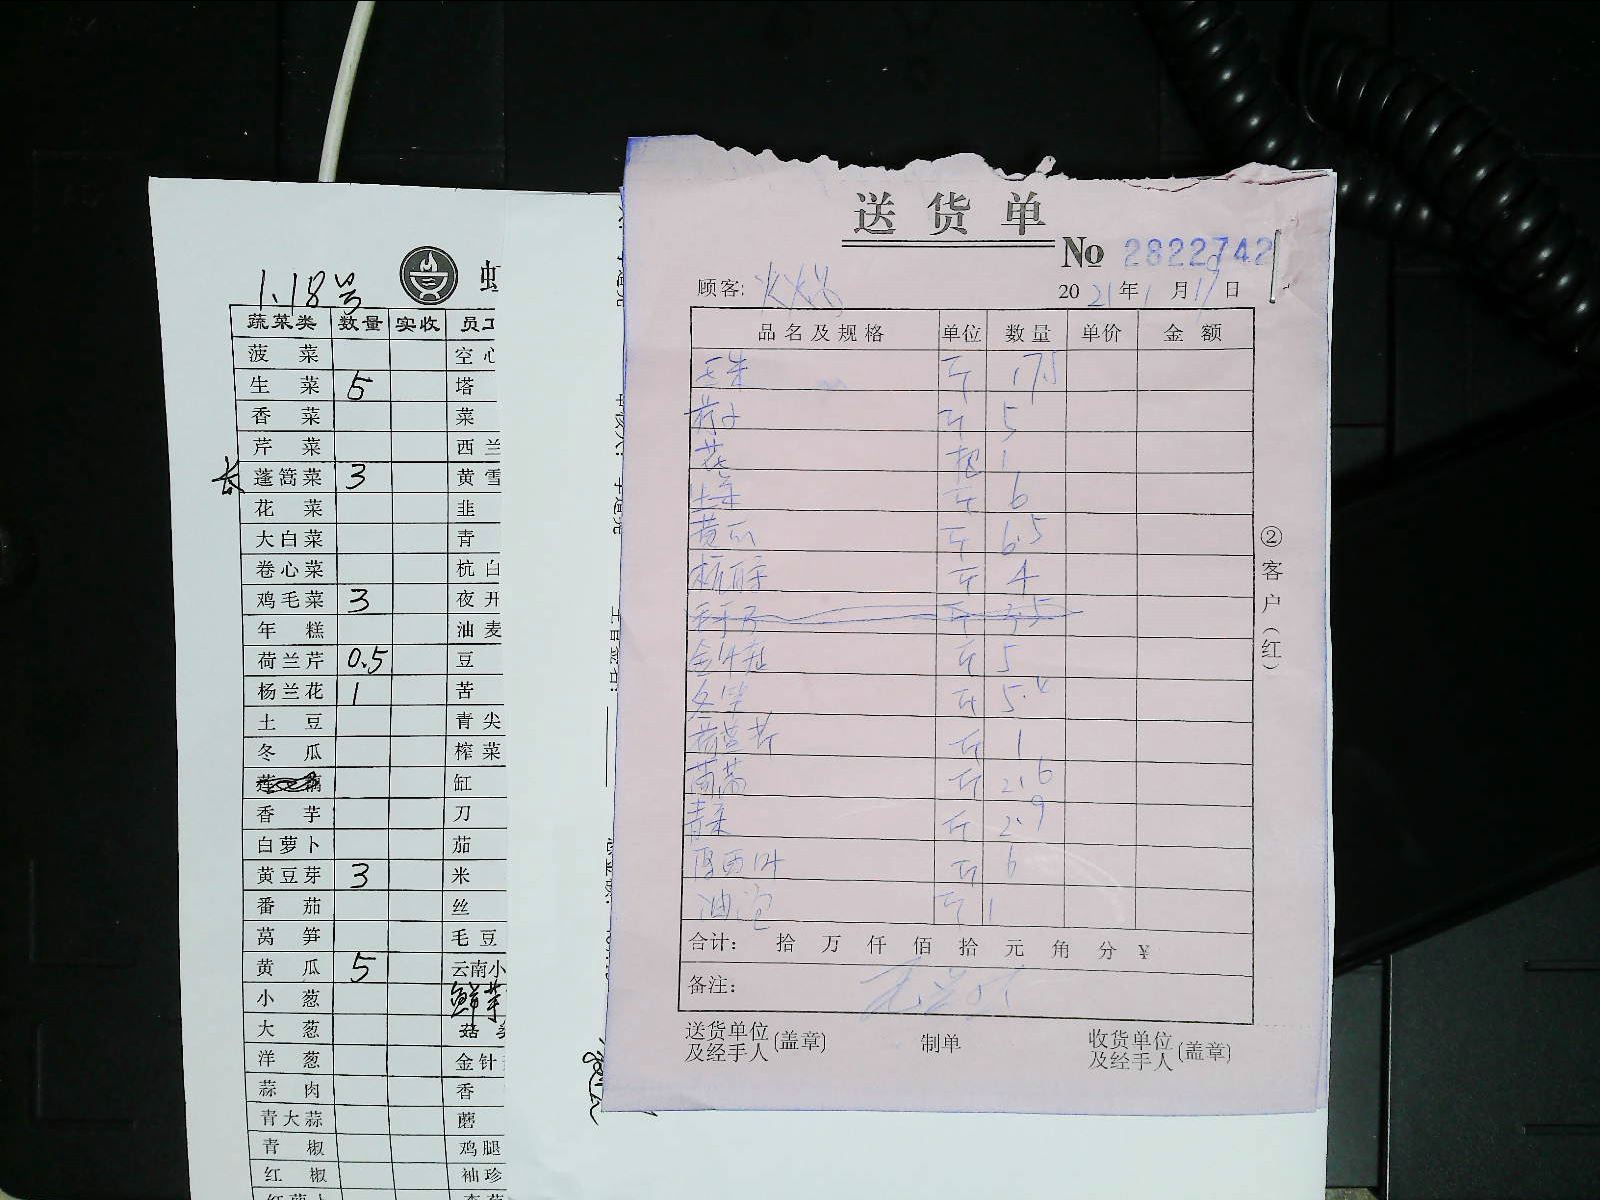 1.18号
虹
蔬菜类 数量 实收 员工
菠菜 空心
生菜 5 塔
香菜 菜
芹菜 西兰
长 蓬蒿菜 3 黄雪
花菜 韭
大白菜 青
卷心菜 杭白
鸡毛菜 3 夜开
年糕 油麦
荷兰芹 0.5 豆
杨兰花 1 苦
土豆 青尖
冬瓜 榨菜
缸
香芋 刀
白萝卜 茄
黄豆芽 3 米
番茄 丝
莴笋 毛豆
黄瓜 5 云南小
小葱 鲜
大葱 菇
洋葱 金针
蒜肉 香
青大蒜 蘑
青椒 鸡腿
红椒 袖珍
送货单
No 2822742
顾客:
2021年1月 日
品名及规格 单位 数量 单价 金额
斤 17.5
茄子 斤 5
花 把 1
生菜 斤 6
黄瓜 斤 6.5
杭椒 斤 4
斤 3.5
金针菇 斤 5
冬笋 斤 5.4
荷兰芹 斤 1
茼蒿 斤 2.6
青菜 斤 2.9
斤 6
油泡 斤 1
合计: 拾 万 仟 佰 拾 元 角 分 ¥
备注:
送货单位及经手人(盖章) 制单 收货单位及经手人(盖章)
②客户(红)